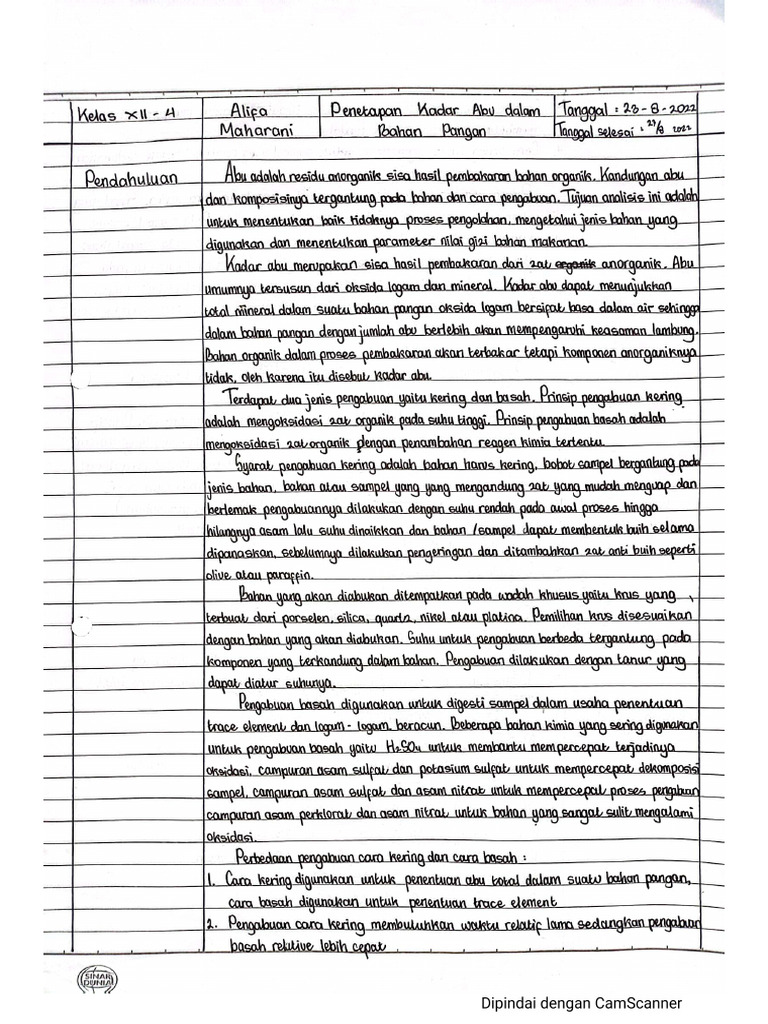 Kelas XII - 4
Alifa
Maharani
Penetapan Kadar Abu dalam
Bahan Pangan
Tanggal : 23-8-2022
Tanggal selesai : 24/8 2022
Pendahuluan
Abu adalah residu anorganik sisa hasil pembakaran bahan organik. Kandungan abu
dan komposisinya tergantung pada bahan dan cara pengabuan. Tujuan analisis ini adalah
untuk menentukan baik tidaknya proses pengolahan, mengetahui jenis bahan yang
digunakan dan menentukan parameter nilai gizi bahan makanan.
Kadar abu merupakan sisa hasil pembakaran dari zat organik anorganik. Abu
umumnya tersusun dari oksida logam dan mineral. Kadar abu dapat menunjukkan
total mineral dalam suatu bahan pangan oksida logam bersifat basa dalam air sehingga
dalam bahan pangan dengan jumlah abu berlebih akan mempengaruhi keasaman lambung.
Bahan organik dalam proses pembakaran akan terbakar tetapi komponen anorganiknya
tidak, oleh karena itu disebut kadar abu.
Terdapat dua jenis pengabuan yaitu kering dan basah. Prinsip pengabuan kering
adalah mengoksidasi zat organik pada suhu tinggi. Prinsip pengabuan basah adalah
mengoksidasi zat organik dengan penambahan reagen kimia tertentu.
Syarat pengabuan kering adalah bahan harus kering, bobot sampel bergantung pada
jenis bahan, bahan atau sampel yang yang mengandung zat yang mudah menguap dan
berlemak pengabuannya dilakukan dengan suhu rendah pada awal proses hingga
hilangnya asam lalu suhu dinaikkan dan bahan /sampel dapat membentuk buih selama
dipanaskan, sebelumnya dilakukan pengeringan dan ditambahkan zat anti buih seperti
olive atau paraffin.
Bahan yang akan diabukan ditempatkan pada wadah khusus yaitu krus yang
terbuat dari porselen, silica, quartz, nikel atau platina. Pemilihan krus disesuaikan
dengan bahan yang akan diabukan. Suhu untuk pengabuan berbeda tergantung pada
komponen yang terkandung dalam bahan. Pengabuan dilakukan dengan tanur yang
dapat diatur suhunya.
Pengabuan basah digunakan untuk digesti sampel dalam usaha penentuan
trace element dan logam-logam beracun. Beberapa bahan kimia yang sering digunakan
untuk pengabuan basah yaitu H₂SO₄ untuk membantu mempercepat terjadinya
oksidasi, campuran asam sulfat dan potasium sulfat untuk mempercepat dekomposisi
sampel, campuran asam sulfat dan asam nitrat untuk mempercepat proses pengabuan
campuran asam perklorat dan asam nitrat untuk bahan yang sangat sulit mengalami
oksidasi.
Perbedaan pengabuan cara kering dan cara basah :
1. Cara kering digunakan untuk penentuan abu total dalam suatu bahan pangan,
cara basah digunakan untuk penentuan trace element
2. Pengabuan cara kering membutuhkan waktu relatif lama sedangkan pengabuan
basah relative lebih cepat
SINAR
DUNIA
Dipindai dengan CamScanner